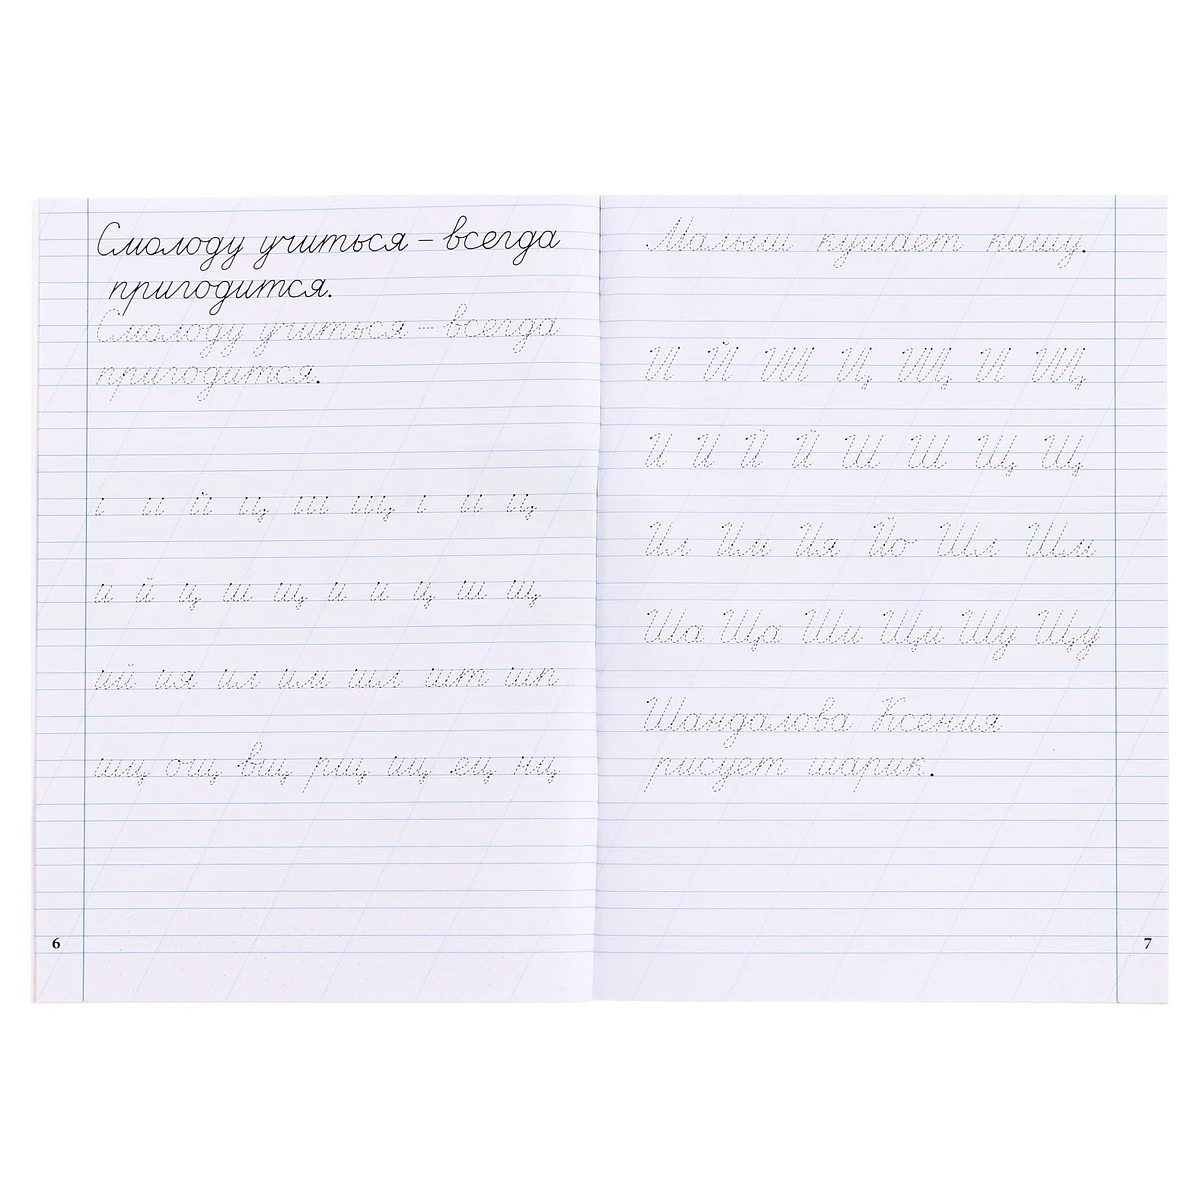 Смолоду учиться – всегда
пригодится.
Смолоду учиться – всегда
пригодится.
і и й ц ш щ і и ц
и й ц ш щ и и ц ш щ
ий ия ил им шл шт шп
иц ощ вщ рщ ищ ец нц
6
Малыш кушает кашу.
И Й Ш Ц Щ И Щ
И И Й Й Ш Ш Щ Щ
Ил Им Ия Йо Шл Шм
Ша Ща Ши Щи Шу Щу
Шандалова Ксения
рисует шарик.
7